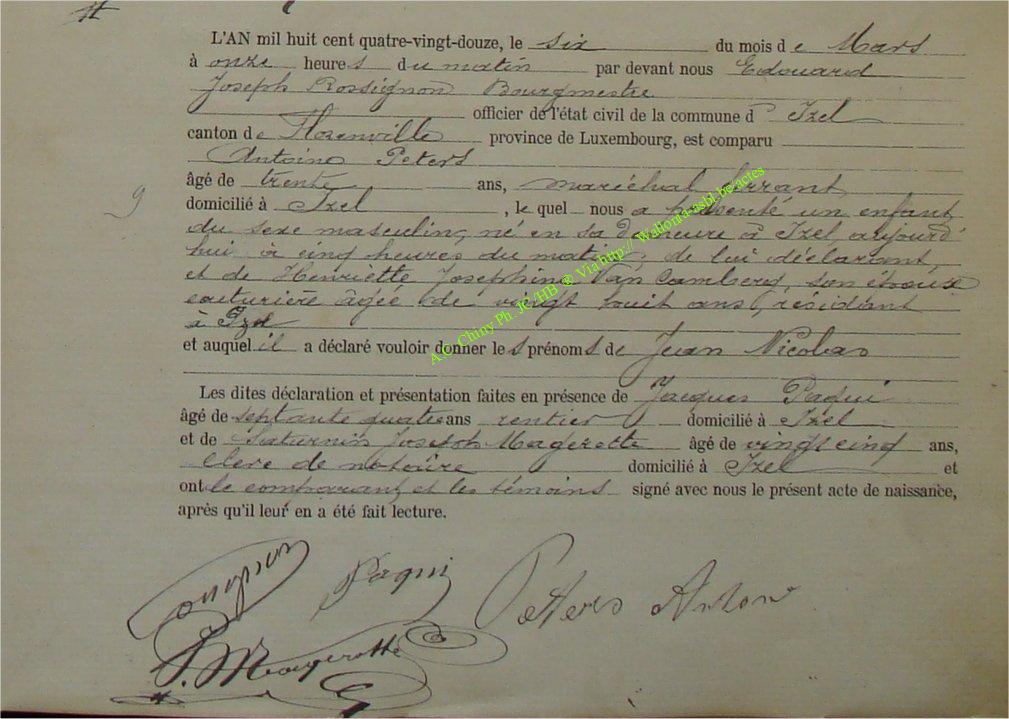 L'AN mil huit cent quatre-vingt-douze, le six du mois de Mars
à onze heures du matin par devant nous Edouard
Joseph Rossignon Bourgmestre
officier de l'état civil de la commune d' Izel
canton de Florenville province de Luxembourg, est comparu
Antoine Peters
âgé de trente ans, maréchal ferrant
9
domicilié à Izel, lequel nous a présenté un enfant
du sexe masculin, né en sa demeure à Izel, aujourd'
hui à cinq heures du matin, de lui déclarant
et de Henriette Josephine Van Camberg, son épouse
couturière âgée de vingt huit ans, résidant
à Izel
et auquel il a déclaré vouloir donner les prénoms de Jean Nicolas
Les dites déclaration et présentation faites en présence de Jacques Paqui
âgé de septante quatre ans rentier domicilié à Izel
et de Saturnin Joseph Magerotte âgé de vingt cinq ans,
clerc de notaire domicilié à Izel et
ont le comparant et les témoins signé avec nous le présent acte de naissance,
après qu'il leur en a été fait lecture.
A.C. Chiny Ph. JC/HB ® Via http:// Wallonia-asbl.be/actes
Paqui
Peters Anton
S. Magerotte